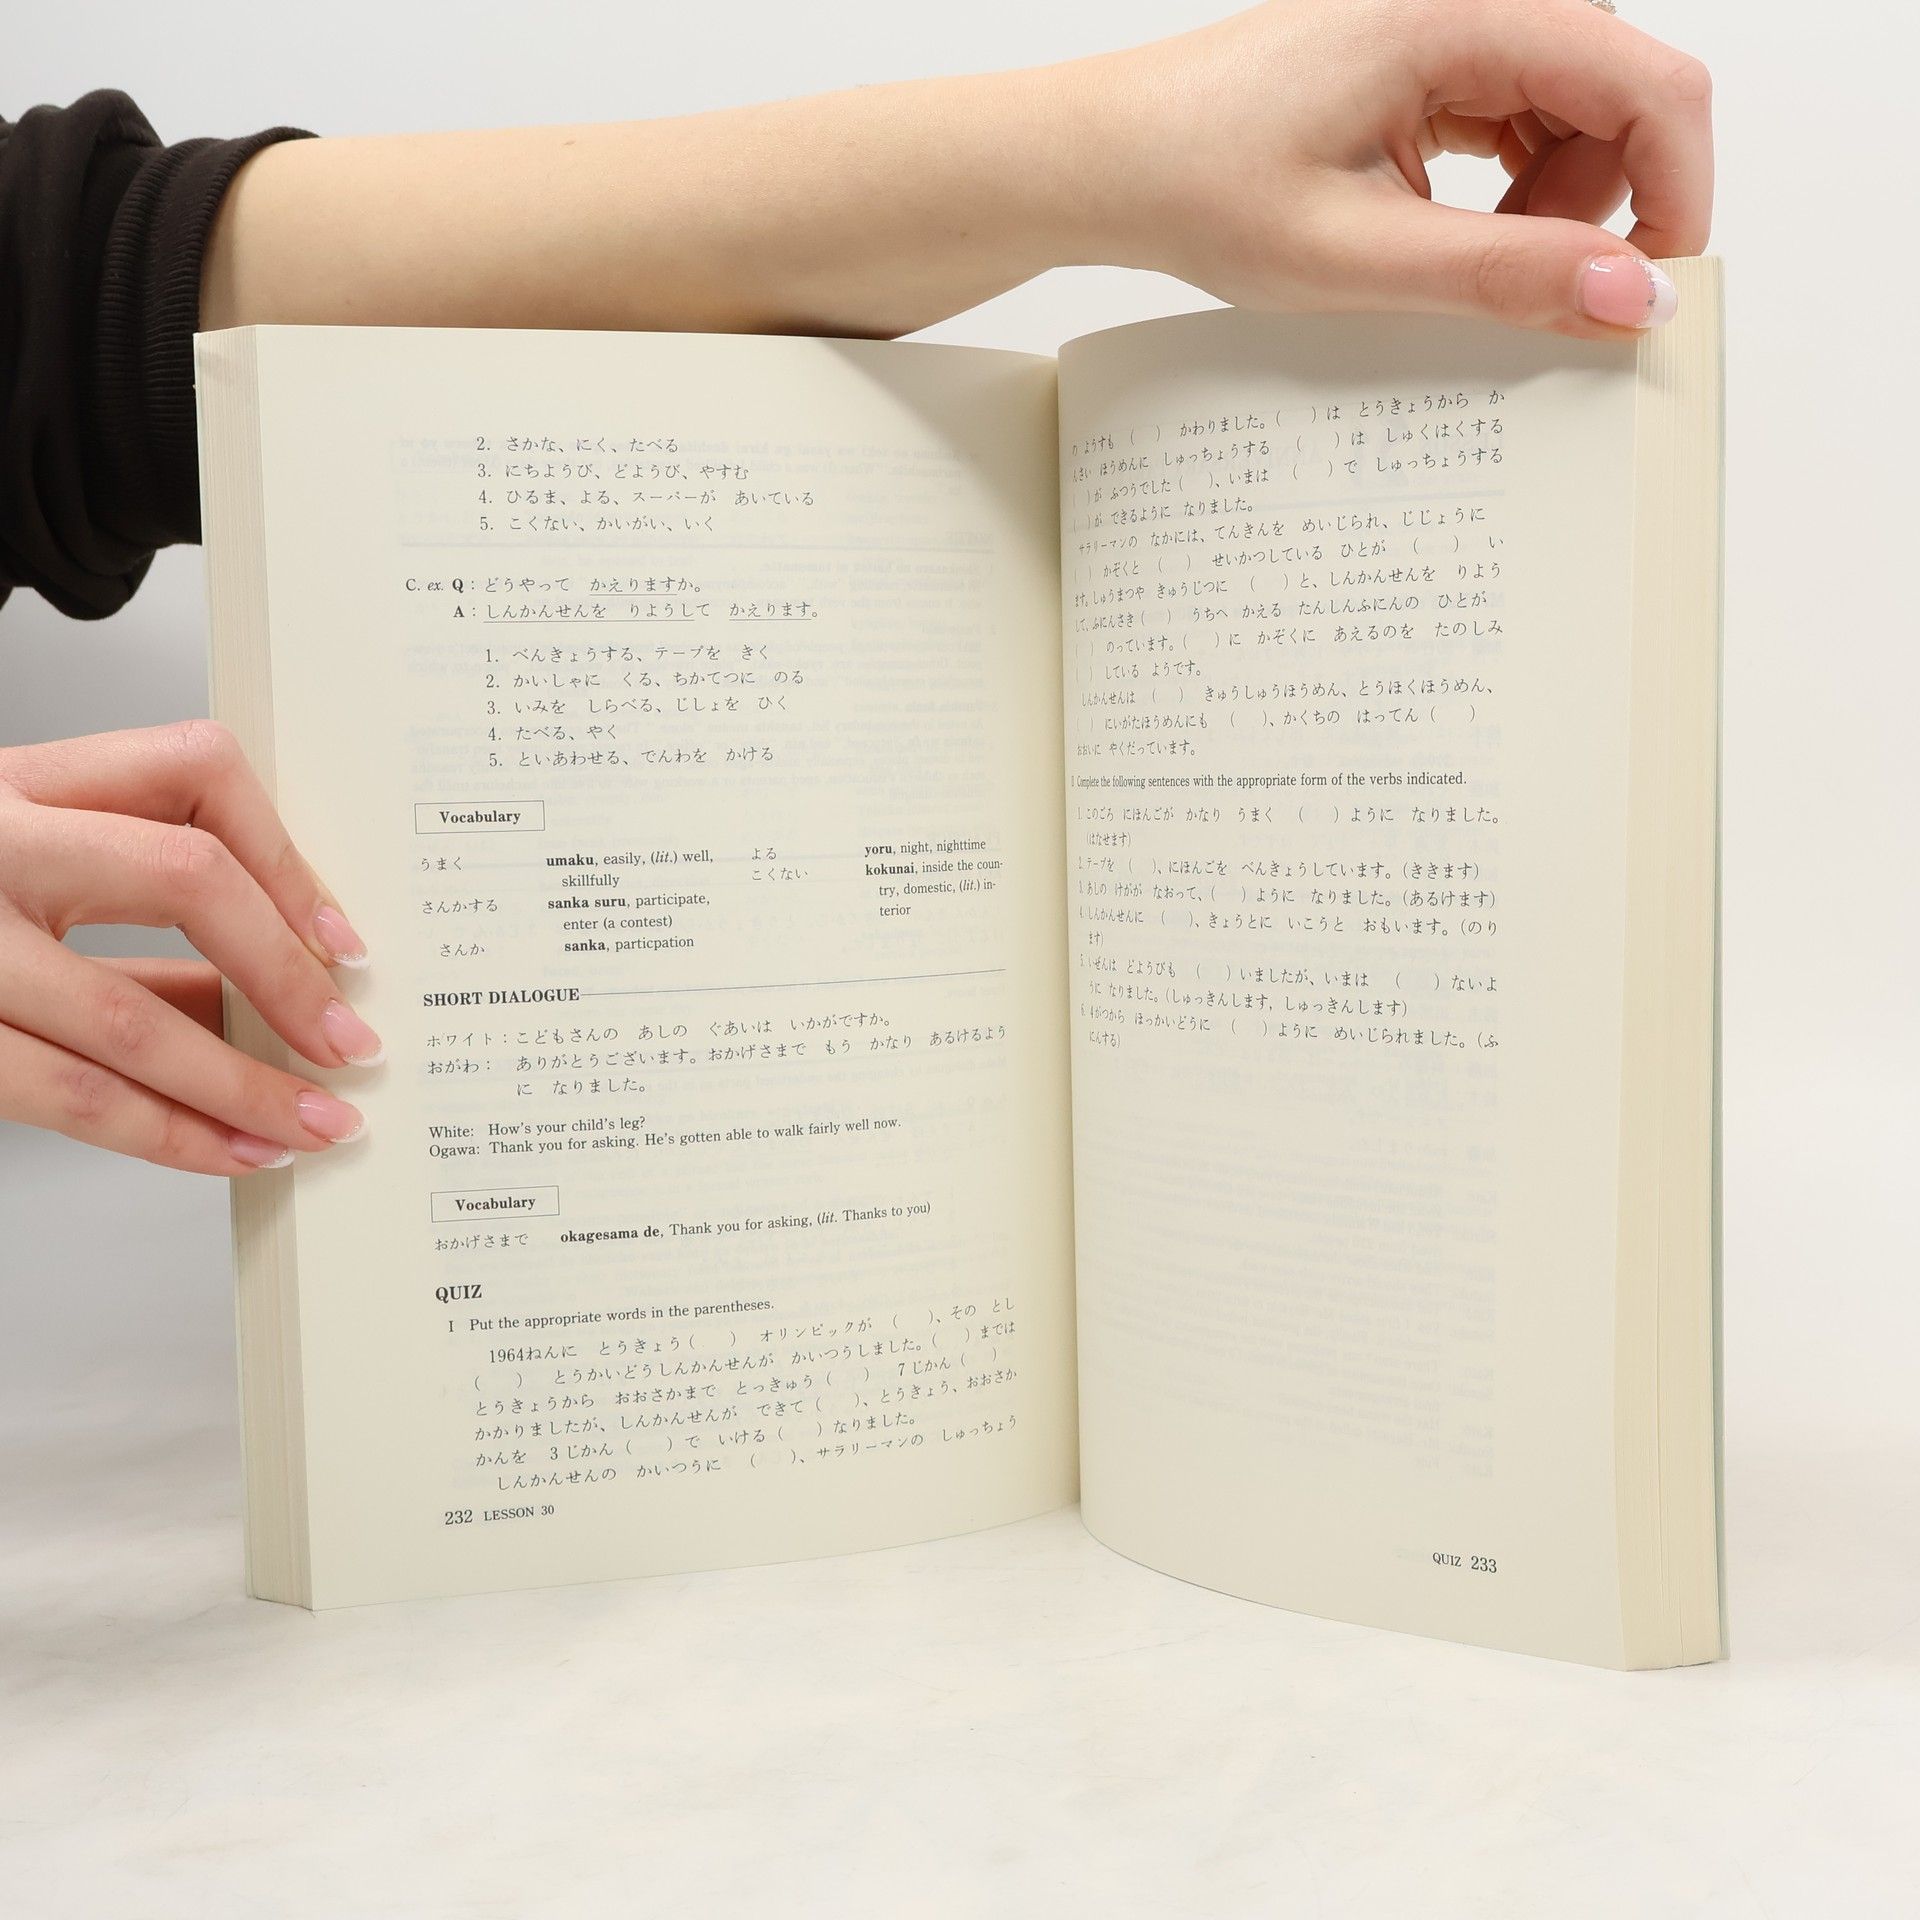 2. さかな、にく、たべる
3. にちようび、どようび、やすむ
4. ひるま、よる、スーパーが　あいている
5. こくない、かいがい、いく
C. ex. Q：どうやって　かえりますか。
A：しんかんせんを　りようして　かえります。
1. べんきょうする、テープを　きく
2. かいしゃに　くる、ちかてつに　のる
3. いみを　しらべる、じしょを　ひく
4. たべる、やく
5. といあわせる、でんわを　かける
Vocabulary
うまく　umaku, easily, (lit.) well,
skillfully
さんかする　sanka suru, participate,
enter (a contest)
さんか　sanka, particpation
よる　yoru, night, nighttime
こくない　kokunai, inside the coun-
try, domestic, (lit.) in-
terior
SHORT DIALOGUE
ホワイト：こどもさんの　あしの　ぐあいは　いかがですか。
おがわ：　ありがとうございます。おかげさまで　もう　かなり　あるけるよう
に　なりました。
White: How's your child's leg?
Ogawa: Thank you for asking. He's gotten able to walk fairly well now.
Vocabulary
おかげさまで　okagesama de, Thank you for asking, (lit. Thanks to you)
QUIZ
I Put the appropriate words in the parentheses.
1964ねんに　とうきょう（　　）　オリンピックが　（　　）、その　とし
（　　）　とうかいどうしんかんせんが　かいつうしました。（　　）までは
とうきょうから　おおさかまで　とっきゅう（　　）　7じかん（　　）
かかりましたが、しんかんせんが　できて（　　）、とうきょう、おおさか
かんを　3じかん（　　）で　いける（　　）なりました。
しんかんせんの　かいつうに　（　　）、サラリーマンの　しゅっちょう
232 LESSON 30
の　ようすも　（　　）　かわりました。（　　）は　とうきょうから　か
んさい　ほうめんに　しゅっちょうする　（　　）は　しゅくはくする
（　　）が　ふつうでした（　　）、いまは　（　　）で　しゅっちょうする
（　　）が　できるように　なりました。
サラリーマンの　なかには、てんきんを　めいじられ、じじょうに
（　　）　かぞくと　（　　）　せいかつしている　ひとが　（　　）　い
ます。しゅうまつや　きゅうじつに　（　　）と、しんかんせんを　りよう
して、ふにんさき（　　）　うちへ　かえる　たんしんふにんの　ひとが
（　　）　のっています。（　　）に　かぞくに　あえるのを　たのしみ
（　　）　している　ようです。
しんかんせんは　（　　）　きゅうしゅうほうめん、とうほくほうめん、
（　　）　にいがたほうめんにも　（　　）、かくちの　はってん（　　）
おおいに　やくだっています。
II Complete the following sentences with the appropriate form of the verbs indicated.
1. このごろ　にほんごが　かなり　うまく　（　　）ように　なりました。
（はなせます）
2. テープを　（　　）、にほんごを　べんきょうしています。（ききます）
3. あしの　けがが　なおって、（　　）ように　なりました。（あるけます）
4. しんかんせんに　（　　）、きょうとに　いこうと　おもいます。（のり
ます）
5. いぜんは　どようびも　（　　）いましたが、いまは　（　　）ないよ
うに　なりました。（しゅっきんします，しゅっきんします）
6. 4がつから　ほっかいどうに　（　　）ように　めいじられました。（ふ
にんする）
QUIZ 233